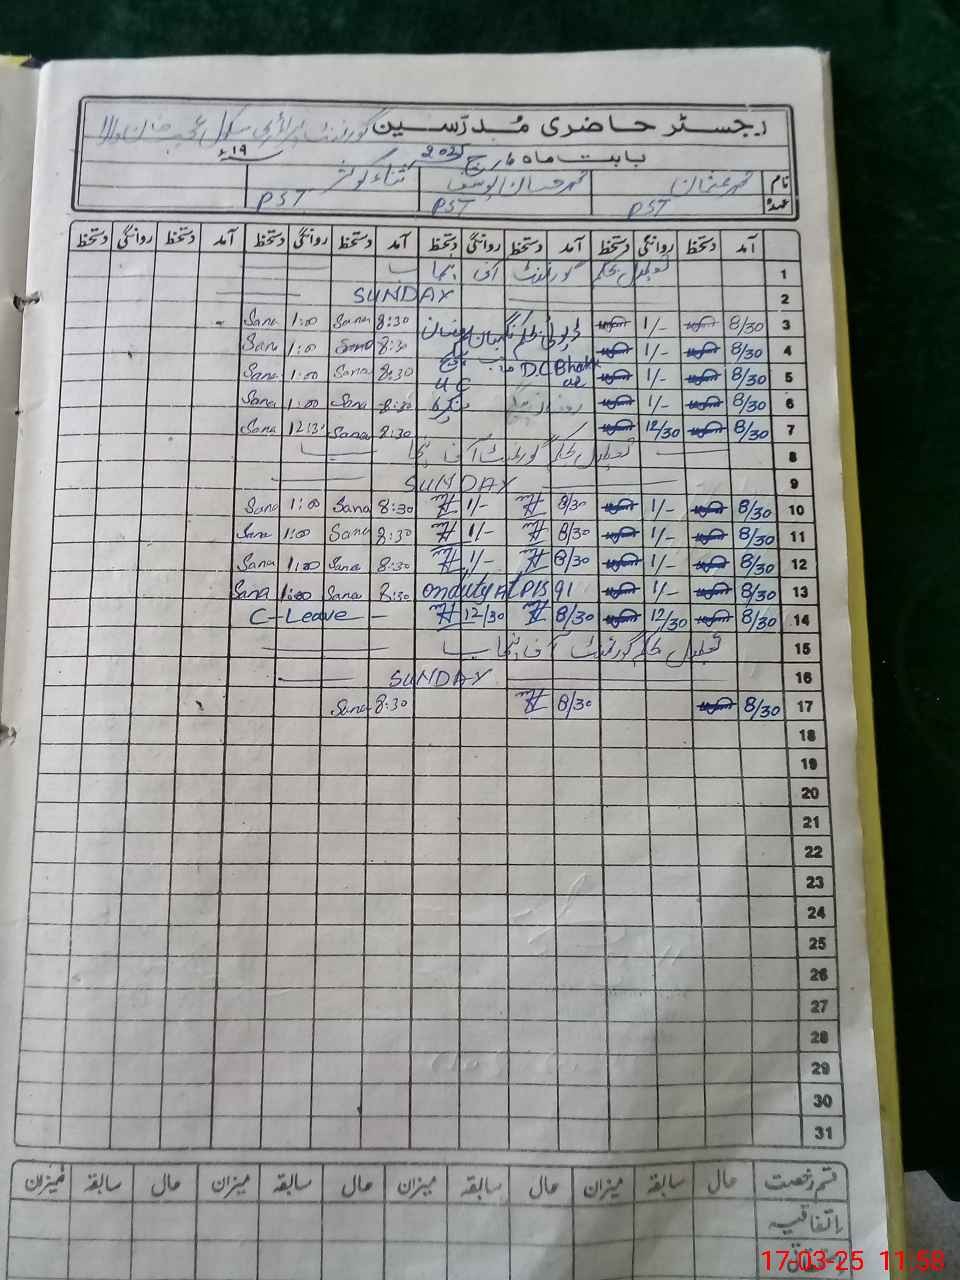 رجسٹر حاضری مُدرّسین گورنمنٹ پرائمری سکول
بابت ماہ مارچ 2025 ۱۹ء
نام محمد عثمان ثناء کوثر
عہدہ PST PST PST
آمد دستخط روانگی دستخط آمد دستخط روانگی دستخط آمد دستخط روانگی دستخط آمد دستخط روانگی دستخط
1 تعطیل بحکم گورنمنٹ آف پنجاب
2 SUNDAY
3 8/30 1/- 8:30 Sana 1:00 Sana
4 8/30 1/- 8:30 Sana 1:00 Sana
5 8/30 1/- D.C 8:30 Sana 1:00 Sana
6 8/30 1/- 8:30 Sana 1:00 Sana
7 8/30 12/30 8:30 Sana Sana
8 تعطیل بحکم گورنمنٹ آف پنجاب
9 SUNDAY
10 8/30 1/- 8/30 1/- 8:30 Sana 1:00 Sana
11 8/30 1/- 8/30 1/- 8:30 Sana 1:00 Sana
12 8/30 1/- 8/30 1/- 8:30 Sana 1:00 Sana
13 8/30 1/- onduty At 8:30 Sana 1:00 Sana
14 8/30 12/30 8/30 12/30 C-Leave
15 تعطیل بحکم گورنمنٹ آف پنجاب
16 SUNDAY
17 8/30 8/30 8:30 Sana
18
19
20
21
22
23
24
25
26
27
28
29
30
31
قسم رخصت حال سابقہ میزان حال سابقہ میزان حال سابقہ میزان حال سابقہ میزان
اتفاقیہ
17-03-25 11:58